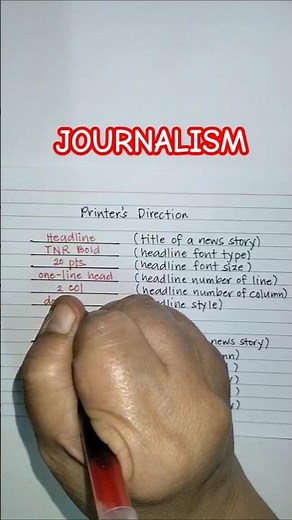 JOURNALISM
Printer's Direction
Headline (title of a news story)
TNR Bold (headline font type)
20 pts. (headline font size)
one-line head (headline number of line)
2 col (headline number of column)
style)
news story)